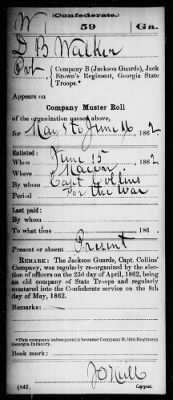 (Confederate.)
W 59 Ga.
D B Walker
Pvt, Company B (Jackson Guards), Jack
Brown's Regiment, Georgia State
Troops.*
Appears on
Company Muster Roll
of the organization named above,
for May 8 to June 16, 1862.
Enlisted:
When June 15, 1862
Where Macon
By whom Capt Collins
Period For the War
Last paid:
By whom
To what time 186
Present or absent Present
REMARK: The Jackson Guards, Capt. Collins'
Company, was regularly re-organized by the elec-
tion of officers on the 23d day of April, 1862, being
an old company of State Troops and regularly
mustered into the Confederate service on the 8th
day of May, 1862.
Remarks:
*This company subsequently became Company
Georgia Infantry.
Book mark:
(642)
Copyist.